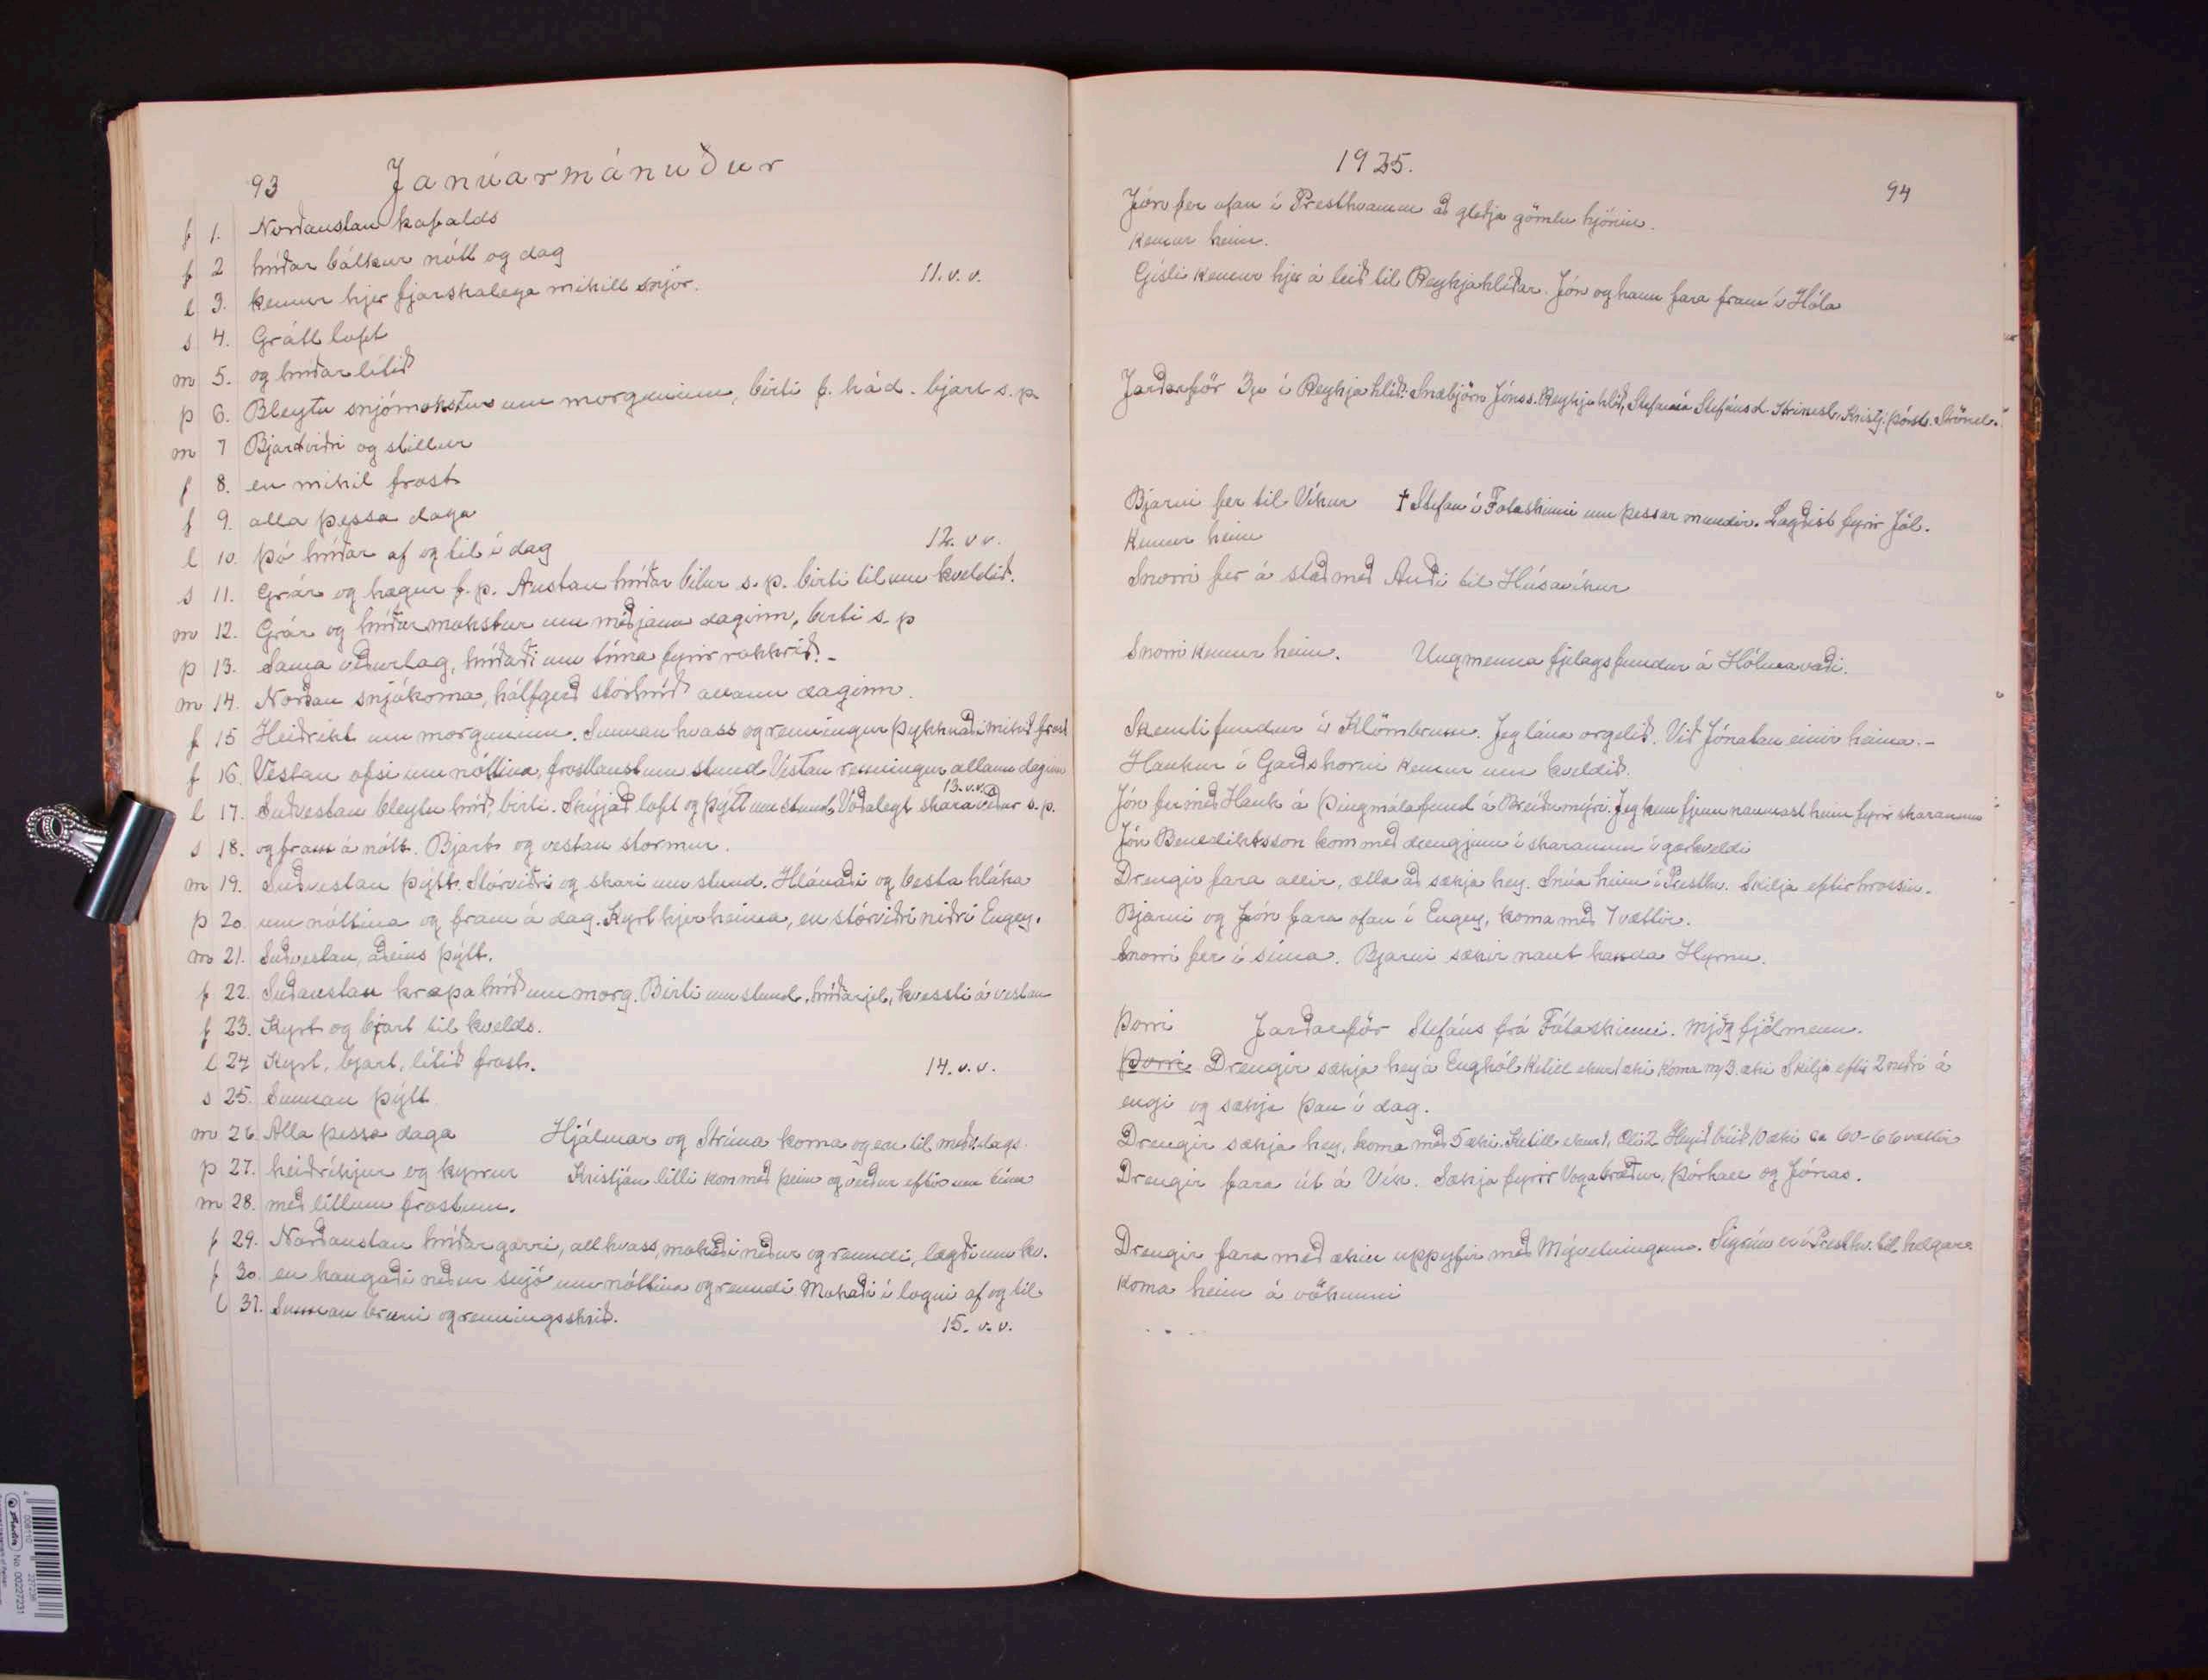 93 Janúarmánuður
f 1. Norðaustan kafalds
f 2 hríðar bálkur nótt og dag
l 3. kemur hjer fjarskalega mikill snjór. 11. v. v.
s 4. Grátt loft
m 5. og hríðar lítið
þ 6. Bleytu snjómokstur um morguninn, birti f. hád. bjart s. p
m 7 Bjartviðri og stillur
f 8. en mikil frost
f 9. alla þessa daga
l 10. þó hríðar af og til í dag 12. v v.
s 11. Grár og hægur f. p. Austan hríðar bilur s. p. birti til um kveldið.
m 12. Grár og hríðar mokstur um miðjann daginn, birti s. p
þ 13. Sama veðurlag, hríðaði um tíma fyrir rökkrið. -
m 14. Norðan snjókoma, hálfgerð stórhríð allann daginn.
f 15 Heiðríkt um morguninn. Sunnan hvass og renningur þykknaði mikið frost
f 16. Vestan ofsi um nóttina, frostlaust um stund Vestan renningur allann daginn
13. v. v.
l 17. Suðvestan bleytu hríð, birti. Skýjað loft og þýtt um stund. Voðalegt skaraveður s. p.
s 18. og fram á nótt. Bjart og vestan stormur.
m 19. Suðvestan þýtt. Stórviðri og skari um stund. Hlánaði og besta hláka
þ 20. um nóttina og fram á dag. Kyrt hjer heima, en stórviðri niðri Engey.
m 21. Suðvestan, aðeins þýtt.
f 22. Suðaustan krapahríð um morg. Birti um stund, hríðarjel, hvessti á vestan
f 23. Kyrt og bjart til kvelds.
l 24 Kyrt, bjart, lítið frost. 14. v. v.
s 25. Sunnan þýtt
m 26. Alla þessa daga Hjálmar og Strúna koma og eru til miðv.dags.
þ 27. heiðríkjur og kyrrur Kristján litli kom með þeim og verður eftir um tíma
m 28. með litlum frostum.
f 29. Norðaustan hríðargarri, all hvass, mokaði niður og renndi, lægði um kv.
f 30. en haugaði niður snjó um nóttina og renndi Mokaði í logni af og til
l 31. Sunnan bruni og renningsskrið.
15. v. v.
1925.
94
Jón fer ofan í Presthvamm að gleðja gömlu hjónin.
Kemur heim.
Gísli kemur hjer á leið til Reykjahlíðar. Jón og hann fara fram í Hóla
Jarðarför 3ja í Reykjahlíð: Snæbjörn Jónss. Reykjahlíð, Stefanía Stefánsd. Kristj. Þórst.
Bjarni fer til Víkur † Stefan í Fótaskinni um þessar mundir. Lagðist fyrir Jól.
Kemur heim
Snorri fer á stað með Auði til Húsavíkur
Snorri kemur heim. Ungmenna fjelagsfundur á Hólmavaði.
Skemtifundur í Klömbrum. Jeg lána orgelið. Við Jónatan einir heima. -
Haukur í Garðshorni kemur um kveldið.
Jón fer með Hauk á Þingmálafund á Breiðumýri. Jeg kem fjenu naumast heim fyrir skaranum
Jón Benediktsson kom með drengjum í skaranum í gærkveldi
Drengir fara allir, ætla að sækja hey. Snúa heim í Presthv. Skilja eftir hrossin.
Bjarni og Jón fara ofan í Engey, koma með 7 vættir.
Snorri fer í síma. Bjarni sækir naut handa Hyrnu.
Þorri Jarðarför Stefáns frá Fótaskinni. Mjög fjölmenn.
Þorri Drengir sækja hey á Enghól Ketill ekur 1 æki koma m/3. æki Skilja eftir 2 niðri á
engi og sækja þau í dag.
Drengir sækja hey, koma með 5 æki. Ketill ekur 1, Óli 2 Heyið búið, 10 æki ca 60-66 vættir
Drengir fara út á Vík. Sækja fyrir Vogabræður, Þórhall og Jónas.
Drengir fara með ækin uppyfir með Mývetningum. Sigrún er í Presthv. til helgar.
Koma heim á vökunni